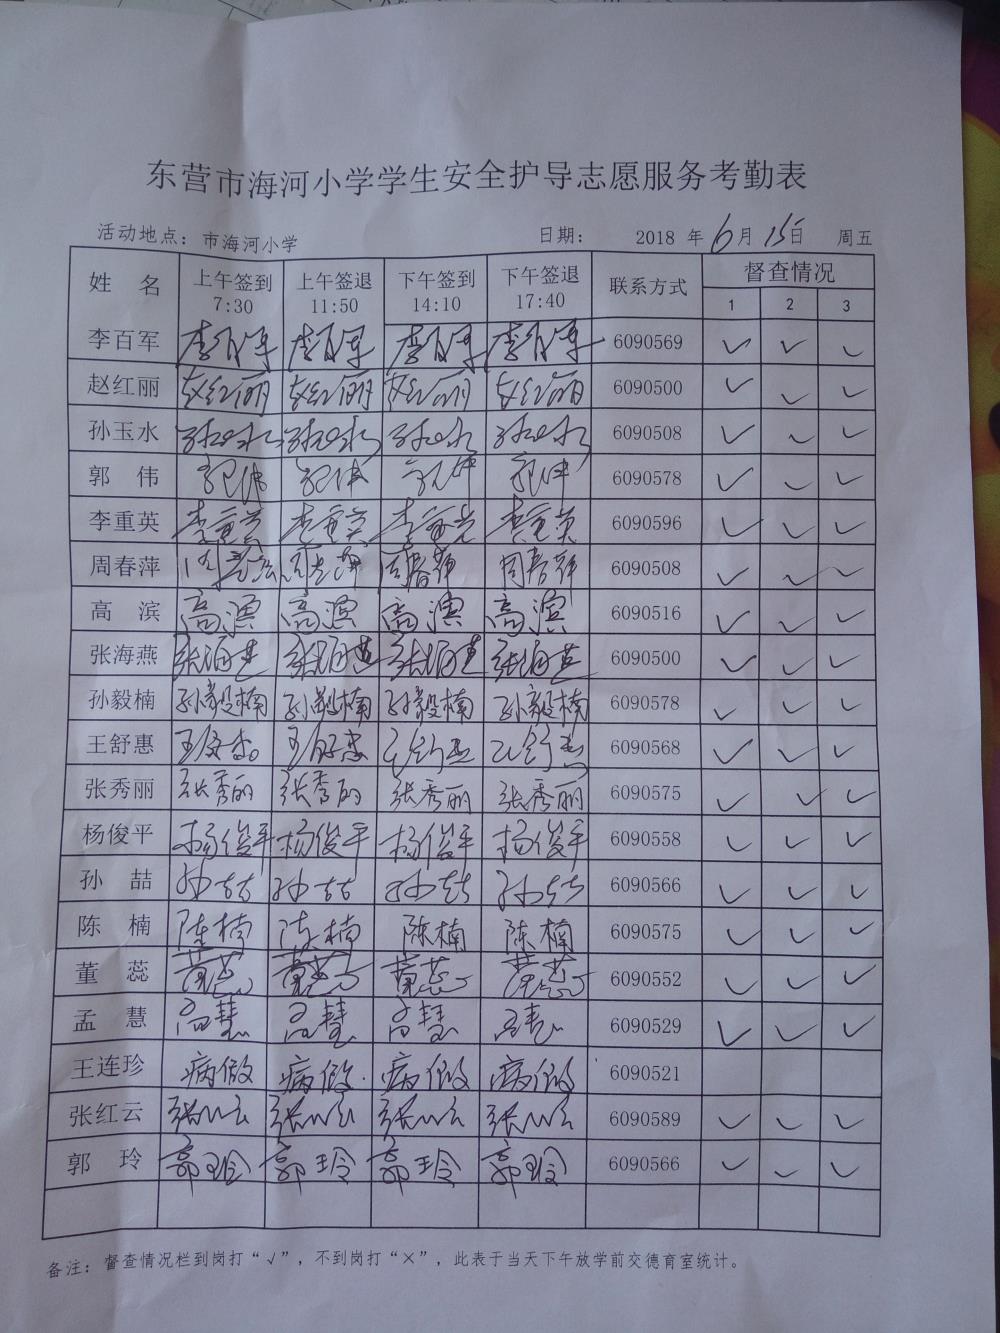 东营市海河小学学生安全护导志愿服务考勤表
活动地点：市海河小学 日期： 2018 年 6 月 15 日 周五
姓 名 上午签到 7:30 上午签退 11:50 下午签到 14:10 下午签退 17:40 联系方式 督查情况
1 2 3
李百军 李百军 李百军 李百军 李百军 6090569 ✓ ✓ ✓
赵红丽 赵红丽 赵红丽 赵红丽 赵红丽 6090500 ✓ ✓ ✓
孙玉水 孙玉水 孙玉水 孙玉水 孙玉水 6090508 ✓ ✓ ✓
郭 伟 郭伟 郭伟 郭伟 郭伟 6090578 ✓ ✓ ✓
李重英 李重英 李重英 李重英 李重英 6090596 ✓ ✓ ✓
周春萍 周春萍 周春萍 周春萍 周春萍 6090508 ✓ ✓ ✓
高 滨 高滨 高滨 高滨 高滨 6090516 ✓ ✓ ✓
张海燕 张海燕 张海燕 张海燕 张海燕 6090500 ✓ ✓ ✓
孙毅楠 孙毅楠 孙毅楠 孙毅楠 孙毅楠 6090578 ✓ ✓ ✓
王舒惠 王舒惠 王舒惠 王舒惠 王舒惠 6090568 ✓ ✓ ✓
张秀丽 张秀丽 张秀丽 张秀丽 张秀丽 6090575 ✓ ✓ ✓
杨俊平 杨俊平 杨俊平 杨俊平 杨俊平 6090558 ✓ ✓ ✓
孙 喆 孙喆 孙喆 孙喆 孙喆 6090566 ✓ ✓ ✓
陈 楠 陈楠 陈楠 陈楠 陈楠 6090575 ✓ ✓ ✓
董 蕊 董蕊 董蕊 董蕊 董蕊 6090552 ✓ ✓ ✓
孟 慧 孟慧 孟慧 孟慧 孟慧 6090529 ✓ ✓ ✓
王连珍 病假 病假 病假 病假 6090521
张红云 张红云 张红云 张红云 张红云 6090589 ✓ ✓ ✓
郭 玲 郭玲 郭玲 郭玲 郭玲 6090566 ✓ ✓ ✓
备注：督查情况栏到岗打“√”，不到岗打“×”，此表于当天下午放学前交德育室统计。